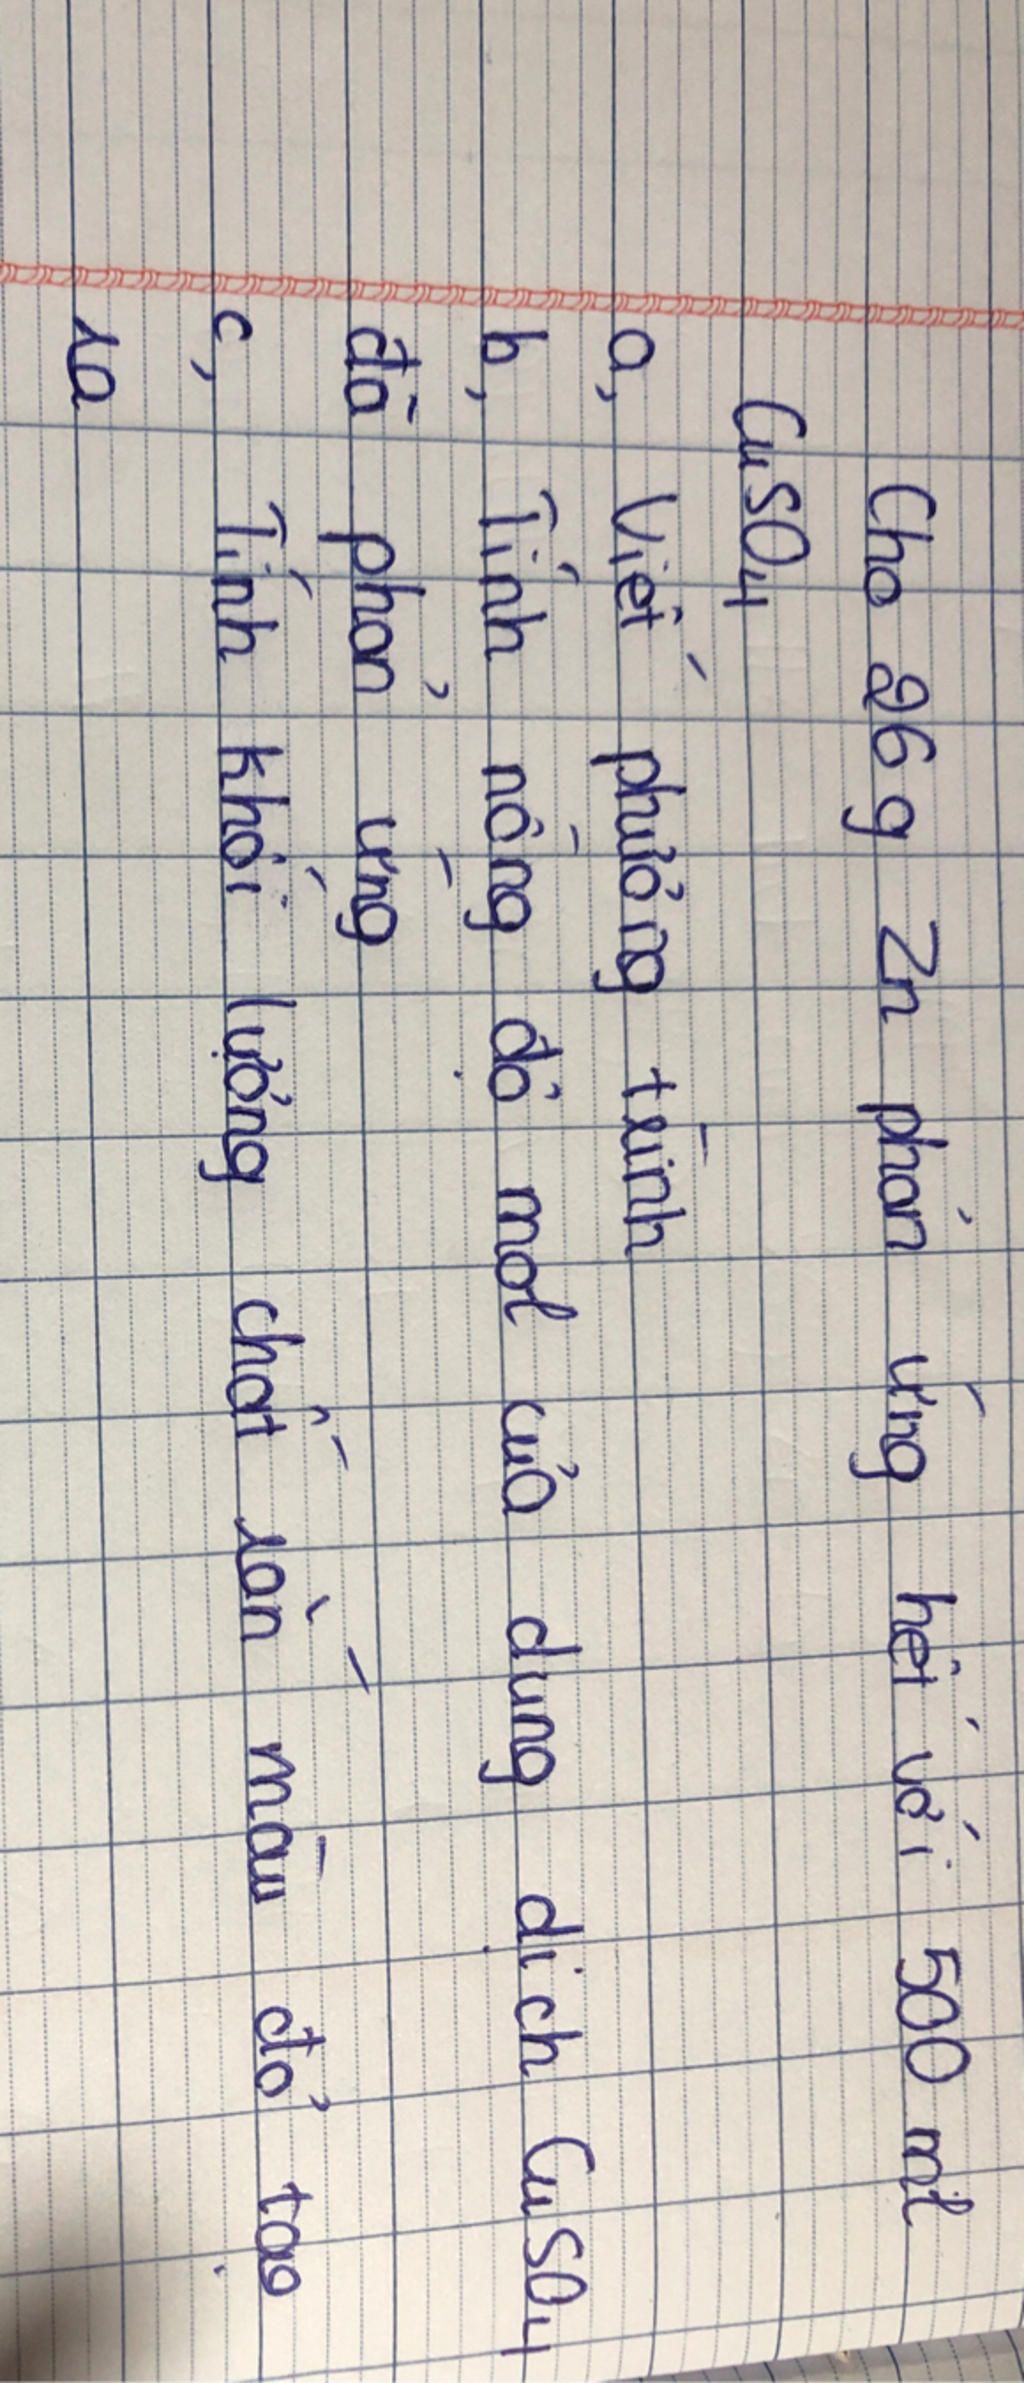 Cho 26 g Zn phản ứng hết với 500 ml
CuSO4
a, Viết phương trình
b, Tính nồng độ mol của dung dịch CuSO4
đã phản ứng
c, Tính khối lượng chất rắn màu đỏ tạo
ra